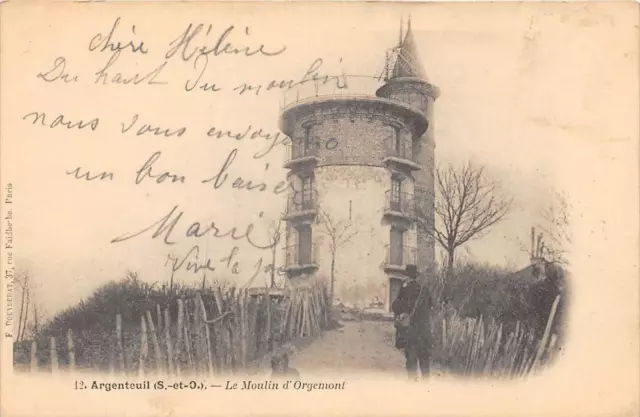 chère Hélène
Du haut du moulin
nous vous envoyons
un bon baiser
Marie
Vive la joie
12. Argenteuil (S.-et-O.). — Le Moulin d'Orgemont
37, rue Faidherbe, Paris